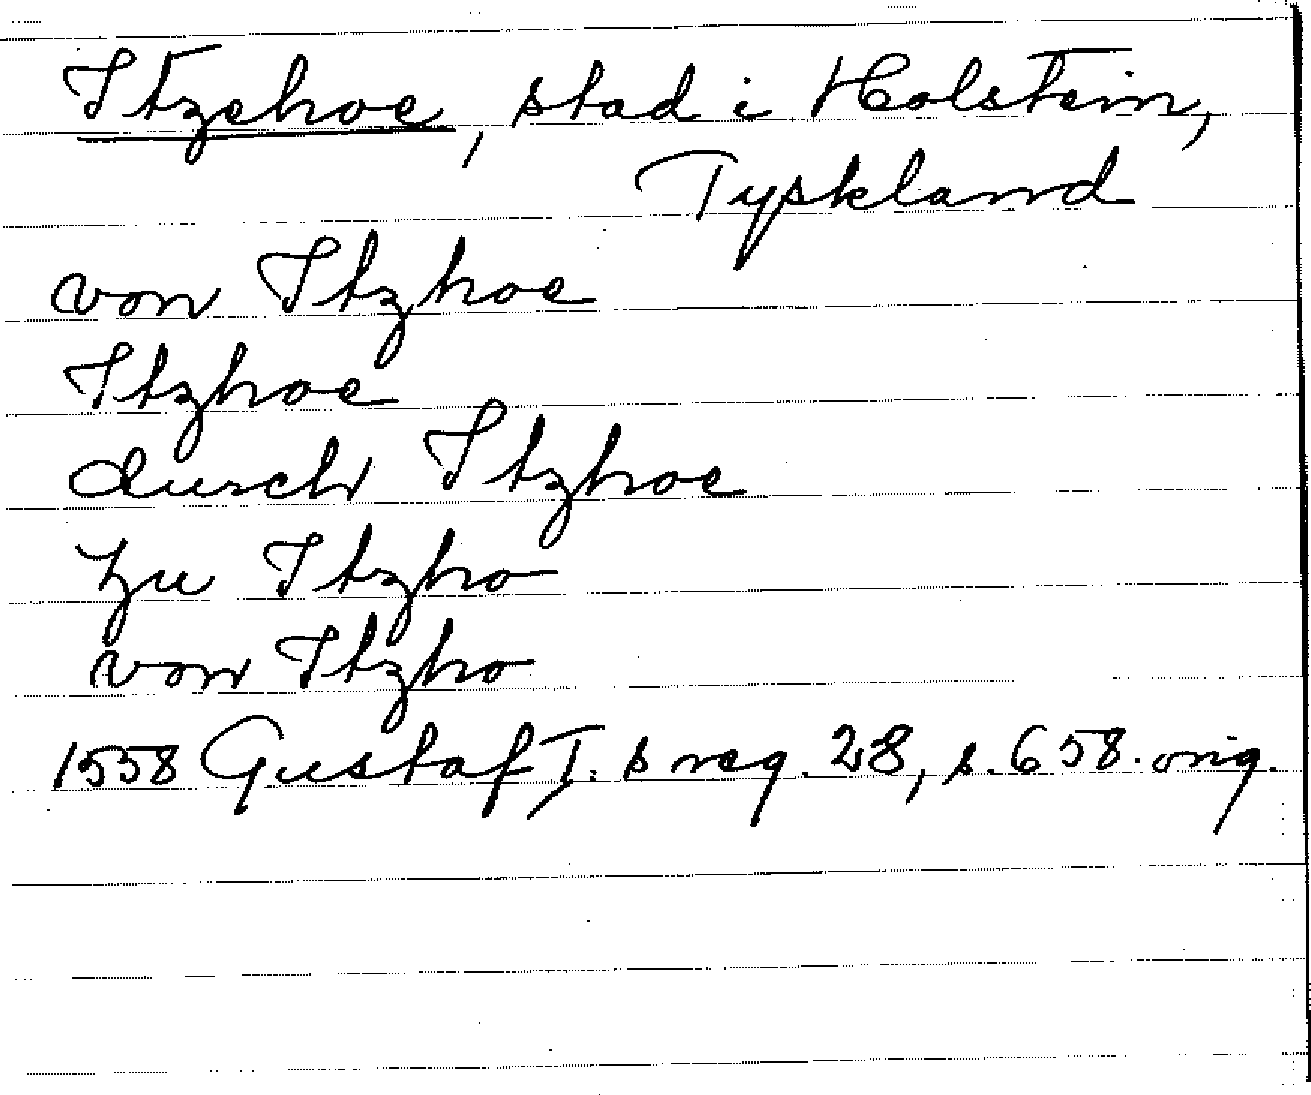 Itzehoe, stad i Holstein,
Tyskland
von Itzhoe
Itzhoe
durch Itzhoe
zu Itzho
von Itzho
1558 Gustaf I:s reg. 28, s. 658. orig.